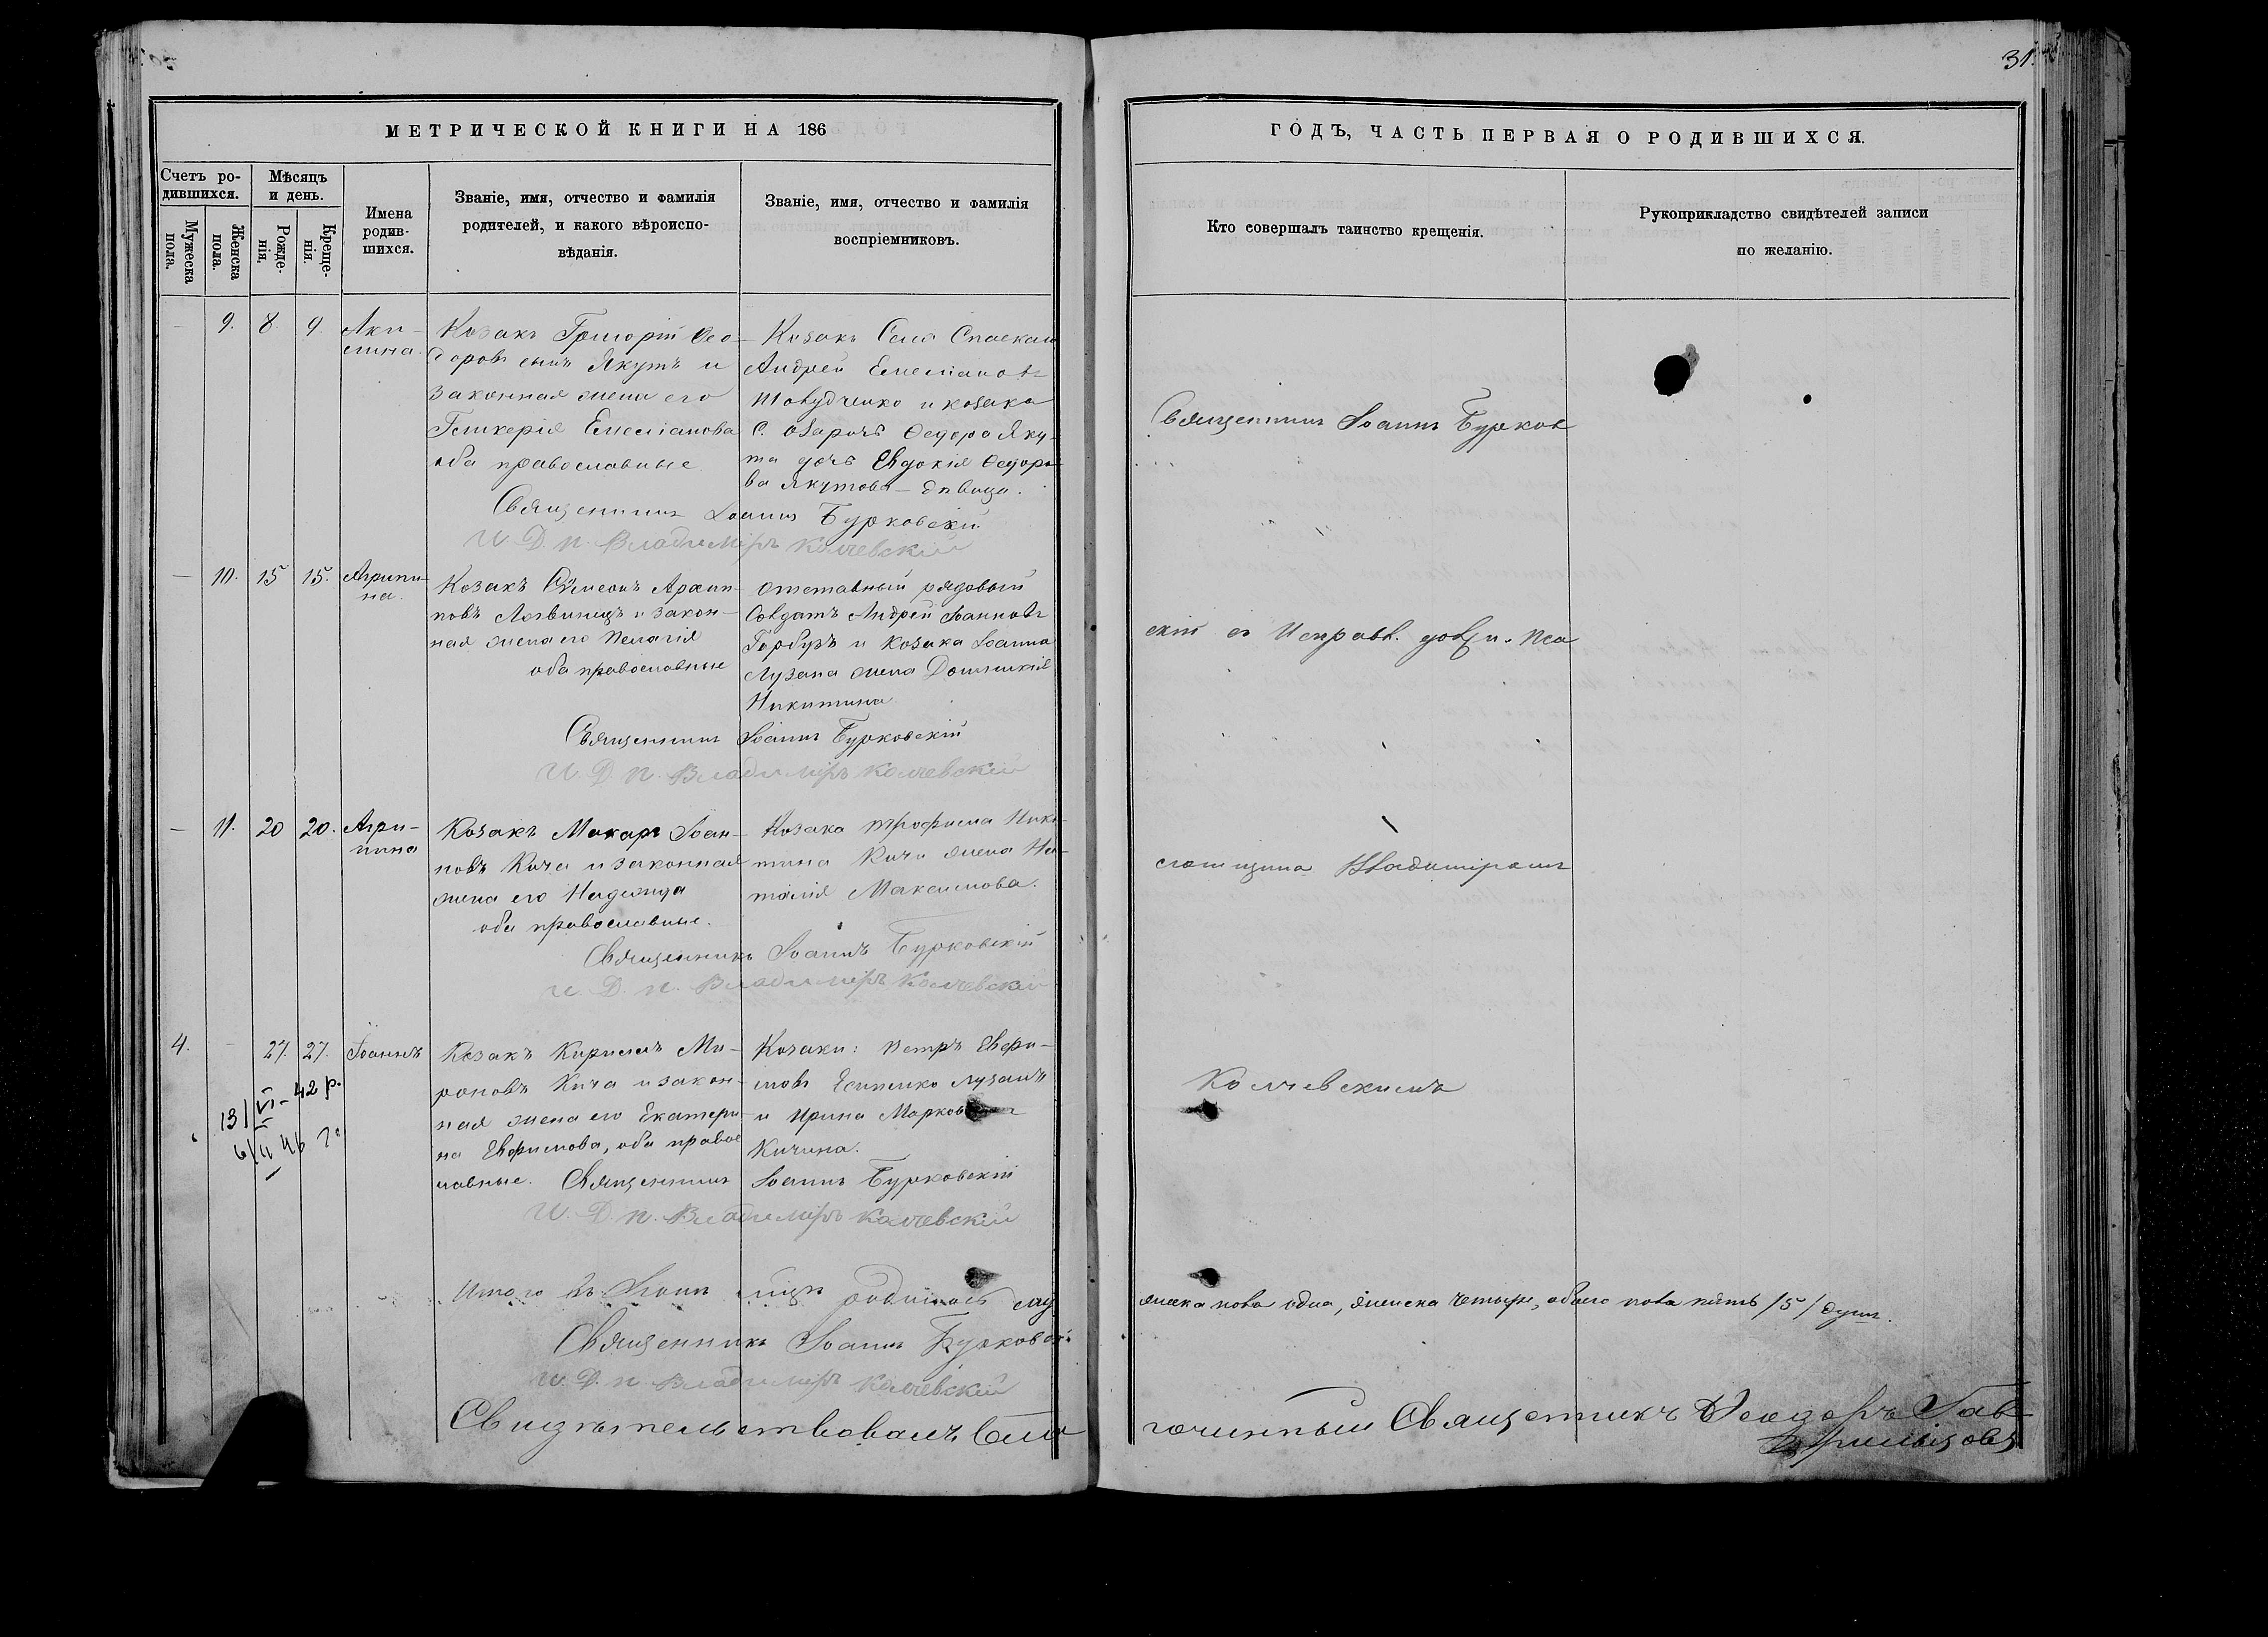 31.
МЕТРИЧЕСКОЙ КНИГИ НА 186
ГОДЪ, ЧАСТЬ ПЕРВАЯ О РОДИВШИХСЯ.
Счетъ ро-
дившихся.
Мужеска
пола.
Женска
пола.
Мѣсяцъ
и день.
Рожде-
нія.
Креще-
нія.
Имена
родив-
шихся.
Званіе, имя, отчество и фамилія
родителей, и какого вѣроиспо-
вѣданія.
Званіе, имя, отчество и фамилія
воспріемниковъ.
Кто совершалъ таинство крещенія.
Рукоприкладство свидѣтелей записи
по желанію.
— 9. 8 9
Аки-
лина.
Козакъ Григорій Ѳео-
доровъ сынъ Якутъ и
законная жена его
Гликерія Емеліанова
оба православные
Козакъ Села Спаскаго
Андрей Емеліановъ
Товудченко и козака
С. Озаричъ Ѳедора Яку-
та дочь Евдокія Ѳедоро-
ва Якутова - дѣвица.
Священникъ Іоаннъ Бурковскій
И. Д. п. Владиміръ Колчевскій
— 10. 15 15.
Агрипи-
на.
Козакъ Сѵмеонъ Архип-
повъ Логвинецъ и закон-
ная жена его Пелагія
оба православные
отставный рядовый
Солдатъ Андрей Іоанновъ
Гарбузъ и козака Іоанна
Лузана жена Домникія
Никитина
Священникъ Іоаннъ Бурковскій
И. Д. п. Владиміръ Колчевскій
— 11. 20 20.
Агри-
пина
Козакъ Макаръ Іоан-
новъ Кича и законная
жена его Надежда
оба православные.
Козака Трофима Ники-
тина Кичи жена На-
талія Максимова.
Священникъ Іоаннъ Бурковскій
И. Д. п. Владиміръ Колчевскій
4. — 27. 27. Іоаннъ
13/VI-42 р.
Козакъ Кирилъ Ми-
роновъ Кича и закон-
ная жена его Екатери-
на Евфимова, оба право
славные.
Козаки: Петръ Евфи-
мовъ Лузанъ
и Ирина Маркова
Кичина.
Священникъ Іоаннъ Бурковскій
И. Д. п. Владиміръ Колчевскій
Священникъ Іоаннъ Бурков
скій съ Исправл. долж. п. Пса
ломщика Владиміромъ
Колчевскимъ
Итого въ Іюнѣ мцѣ родилось му
жеска пола одна, женска четыре, обоего пола пять /5/ душъ.
Священникъ Іоаннъ Бурковскій
И. Д. п. Владиміръ Колчевскій
Свидѣтельствовалъ Благо
чинный Священникъ Ѳеодоръ Гав